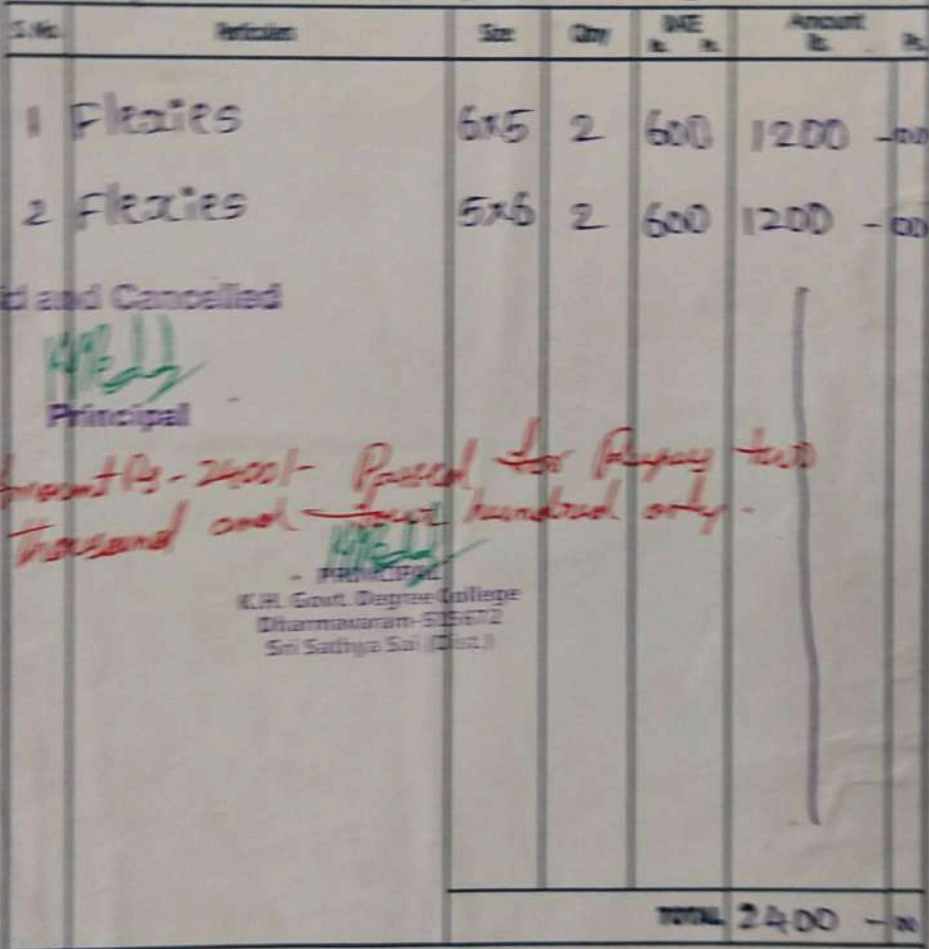 S.No. Particulars Size Qty RATE Rs. Ps. Amount Rs. Ps.
1 Flexies 6x5 2 600 1200 -00
2 Flexies 5x6 2 600 1200 - 00
id and Cancelled
Principal
Amount Rs - 2400/- Passed for Rupees two
thousand and four hundred only.
PRINCIPAL
K.H. Govt. Degree College
Dharmavaram-515672
Sri Sathya Sai (Dist.)
TOTAL 2400 - 00